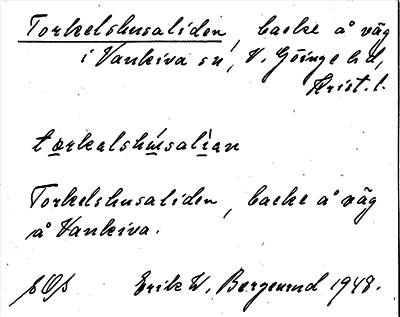 Torkelshusaliden, backe å väg
i Vankiva sn, V. Göinge hd,
Krist. l.
torkalshúsalian
Torkelshusaliden, backe å väg
å Vankiva.
Erik W. Bergenrud 1948.